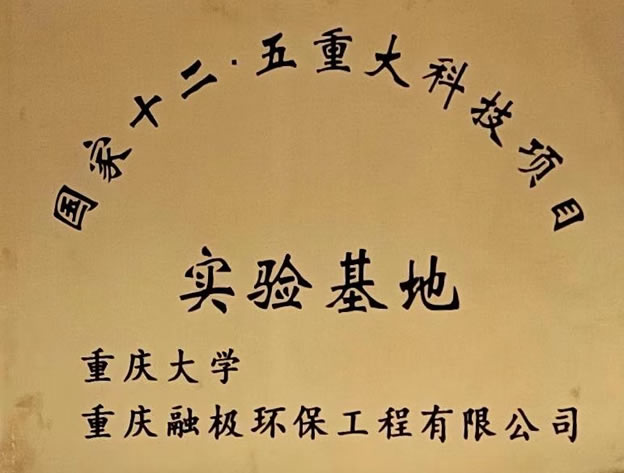 国家十二·五重大科技项目
实验基地
重庆大学
重庆融极环保工程有限公司